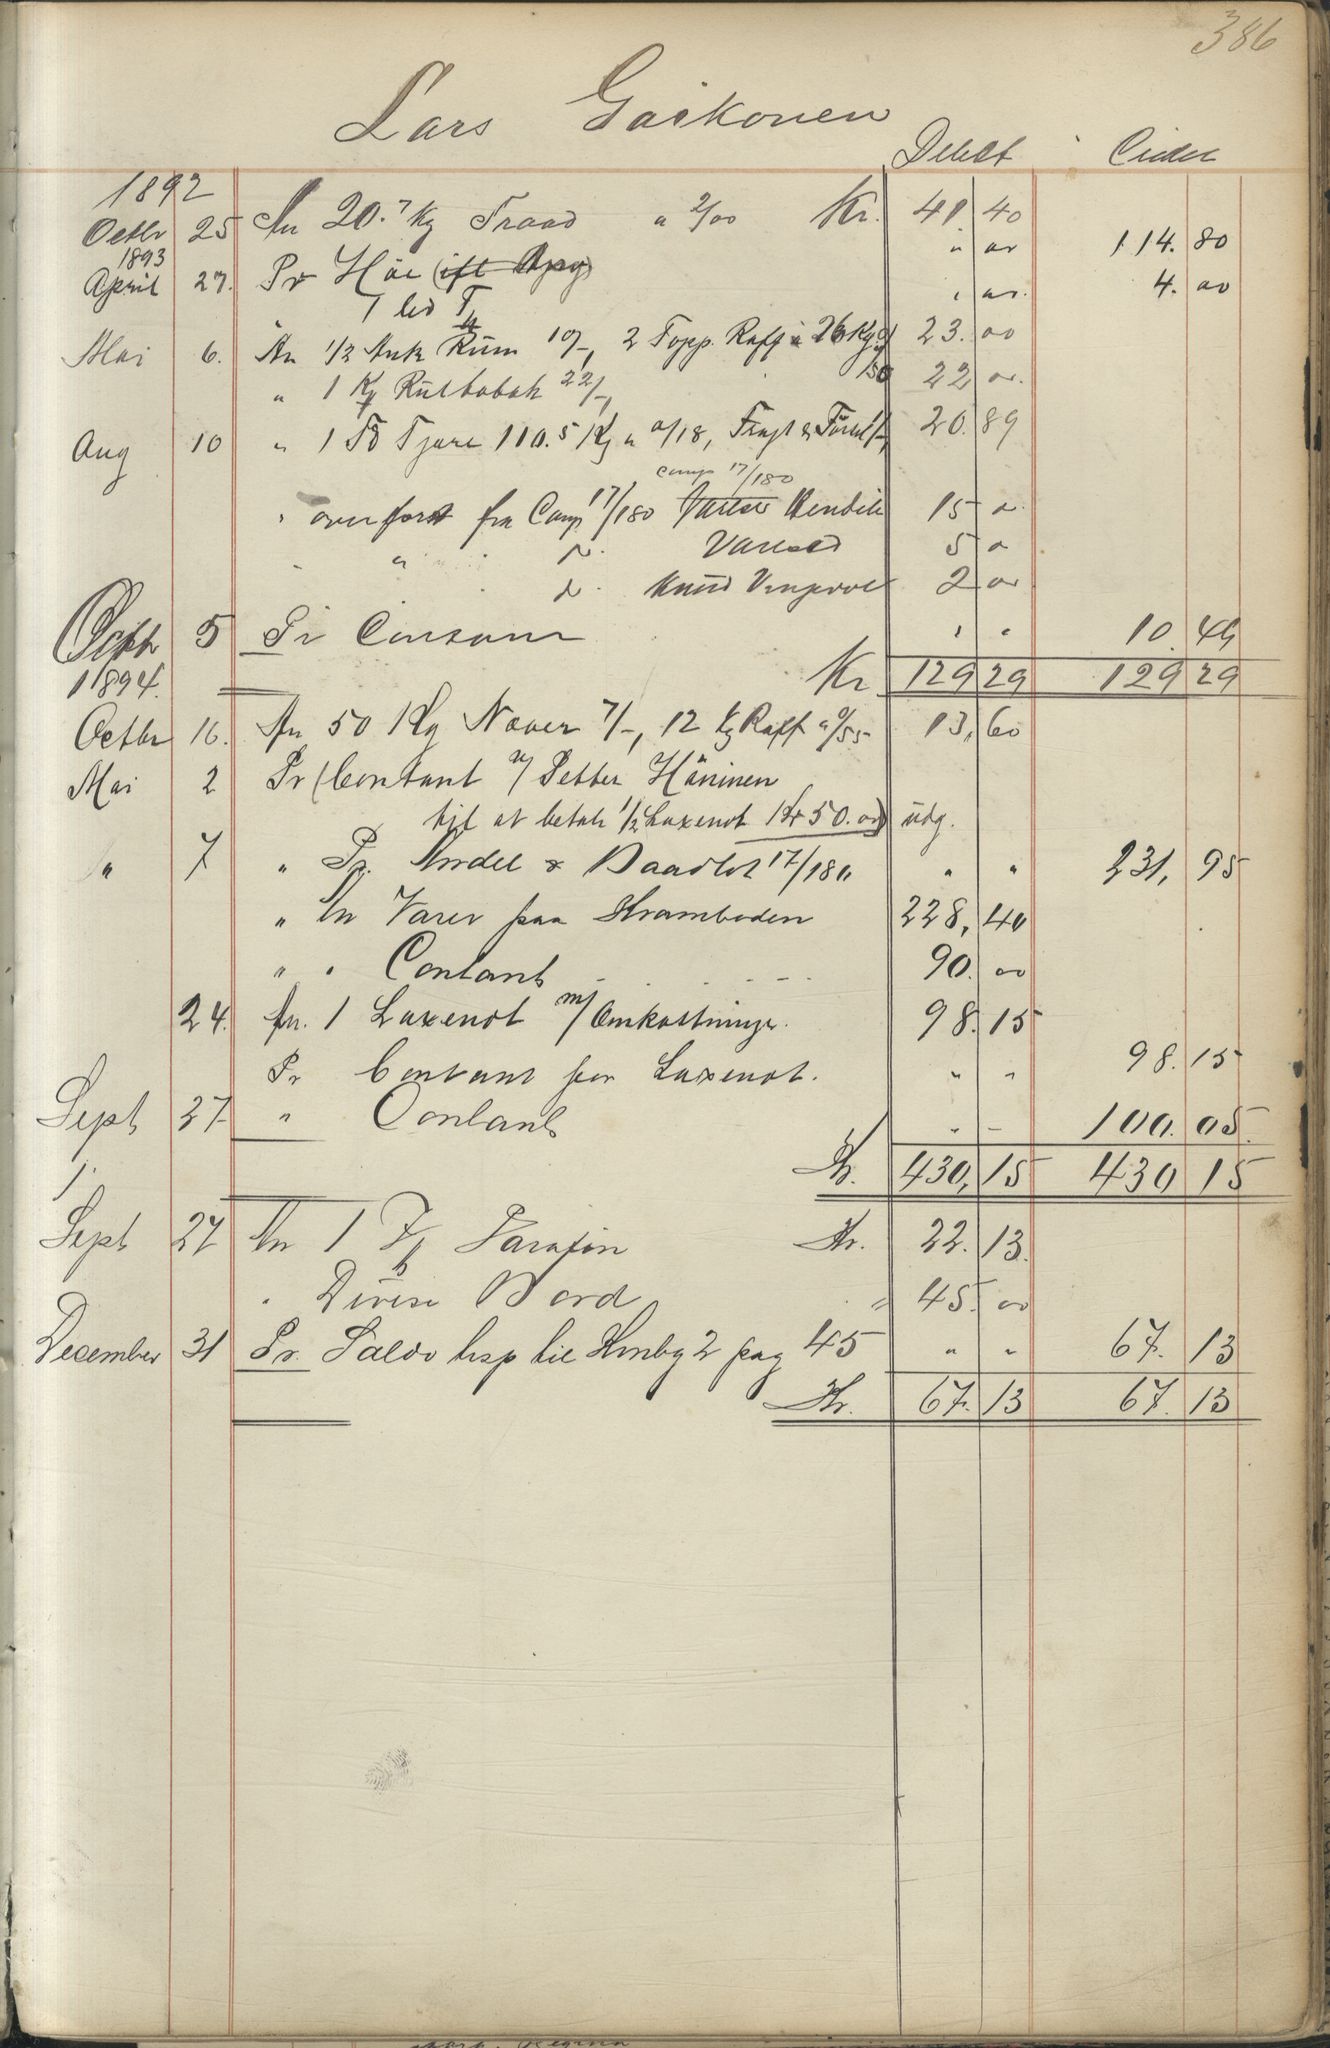 386
Lars Gaikonen
Debet Credet
1892
Octbr 25 An 20.7 Kg Traad a 2/00 Kr. 41 40
1893
April 27. Pr Höe " " 114. 80
" 1 led " " 4. 00
Mai 6. An 1/2 Ank Rüm 19/-, 2 Topp. Raff a 26 Kg 23. 00
" 1 Kg Rültobak 22/-, 22 00
Aug 10 " 1 Tö Tjære 110.5 Kg a 0/18, Fragt & 20. 89
Camp 17/180
" overført fra Camp 17/180 Hendik 15 "
" " " Varesed 5 "
Knüd 2 00
Octbr 5 Pr Contant " " 10. 49
Kr 129 29 129 29
1894.
Octbr 16. An 50 Kg Næver 7/-, 12 Kg Raff a 0/55 13, 60
Mai 2 Pr (Contant v/ Petter Häninen
til at betale 1/2 Laxenot Kr 50. 00) üdg.
" 7 " Pr. Andel & Baadlot 17/180 " " 231, 95
" An Varer paa Kramboden 228, 40
" " Contant 90. 00
24. An. 1 Laxenot m/ Omkostninger. 98. 15
Pr Contant for Laxenot. " " 98. 15
Sept 27 " Contant " " 100. 05.
Kr. 430, 15 430 15
Sept 27 An 1 Fg Parafin Kr. 22. 13.
" Diverse Bord " 45. 00
December 31 Pr. Saldo trsp til Hmbg 2 pag 45 " " 67. 13
Kr. 67. 13 67. 13